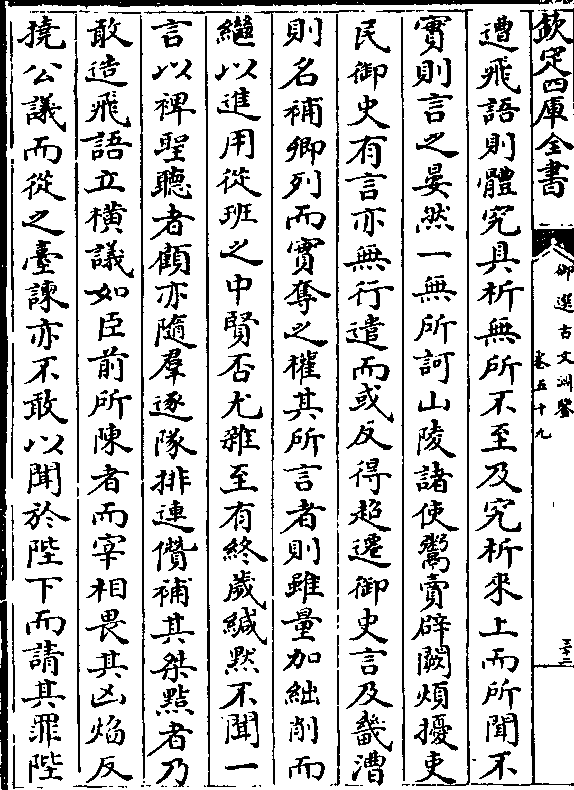 欽定四庫全書
御選古文淵鑒
卷五十九
遭飛語則體究具析無所不至及究析來上而所聞不
實則言之晏然一無所訶山陵諸使鬻賣辟闕煩擾吏
民御史有言亦無行遣而或反得超遷御史言及畿漕
則名補卿列而實奪之權其所言者則雖量加絀削而
繼以進用從班之中賢否尤雜至有終歲緘黙不聞一
言以裨聖聽者顧亦隨羣逐隊排連儹補其桀黠者乃
敢造飛語立橫議如臣前所陳者而宰相畏其凶焰反
撓公議而從之臺諫亦不敢以聞於陛下而請其罪陛